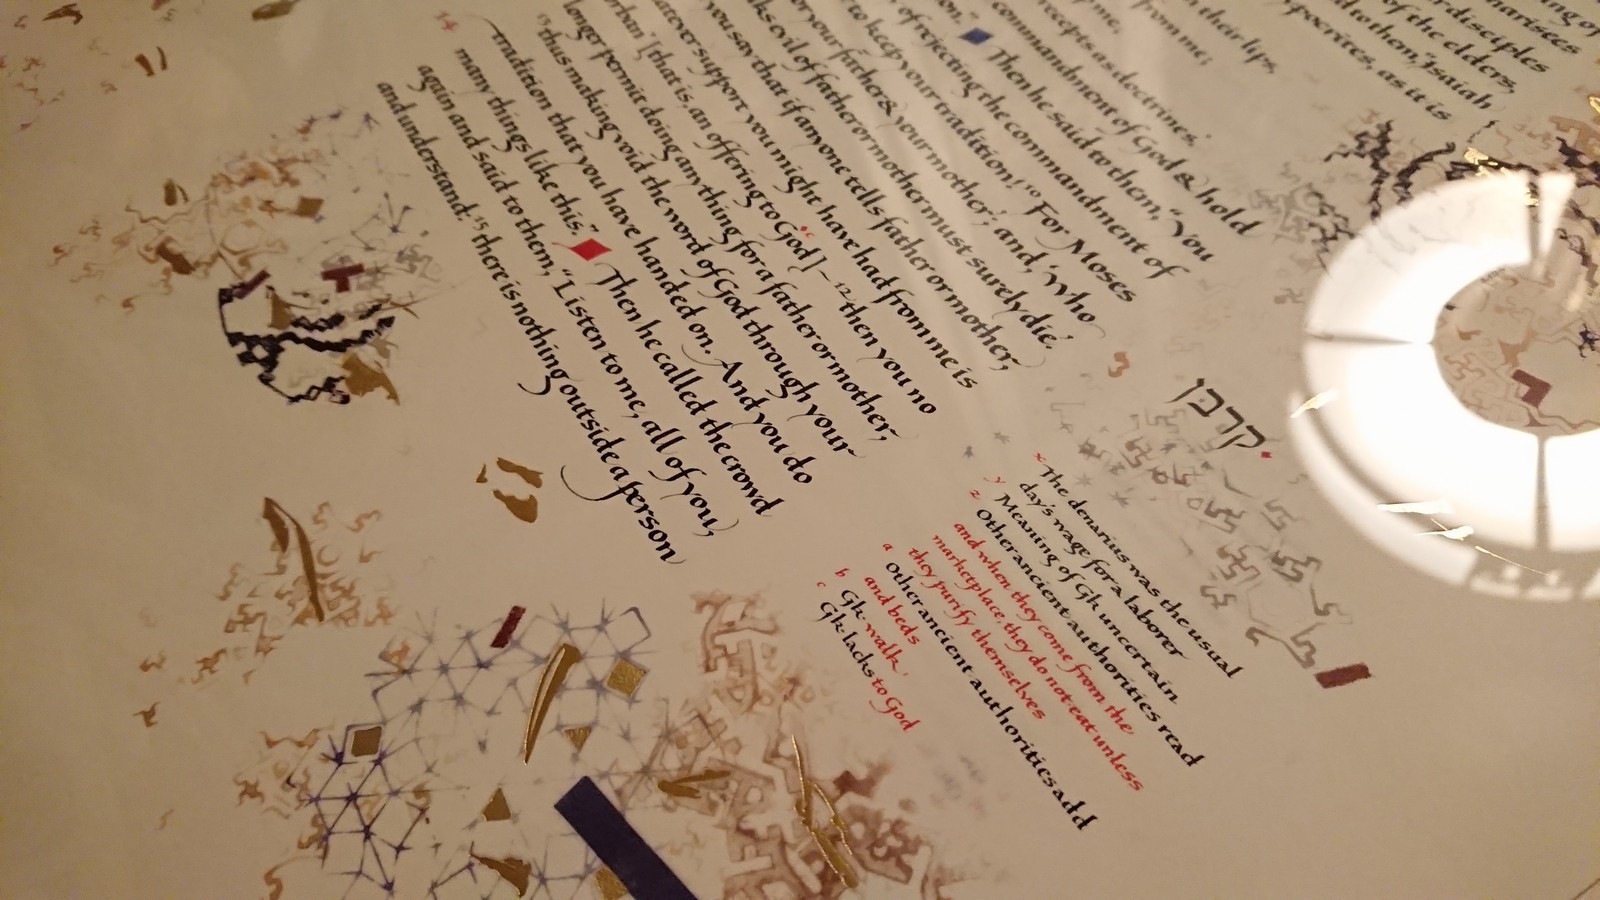 ing of
Pharisees
disciples
of the elders,
to them, "Isaiah
pocrites, as it is
their lips,
from me;
me,
recepts as doctrines.'
commandment of God & hold
on." Then he said to them, "You
of rejecting the commandment of
to keep your tradition! 10 For Moses
your father & your mother'; and, 'Who
ks evil of father or mother must surely die.'
you say that if anyone tells father or mother,
atever support you might have had from me is
orban' [that is, an offering to God c] — 12 then you no
longer permit doing anything for a father or mother,
13 thus making void the word of God through your
tradition that you have handed on. And you do
14 many things like this." Then he called the crowd
again and said to them, "Listen to me, all of you,
and understand: 15 there is nothing outside a person
קרבן
x The denarius was the usual
day's wage for a laborer
y Meaning of Gk uncertain
z Other ancient authorities read
and when they come from the
marketplace, they do not eat unless
they purify themselves
a Other ancient authorities add
and beds
b Gk walk
c Gk lacks to God